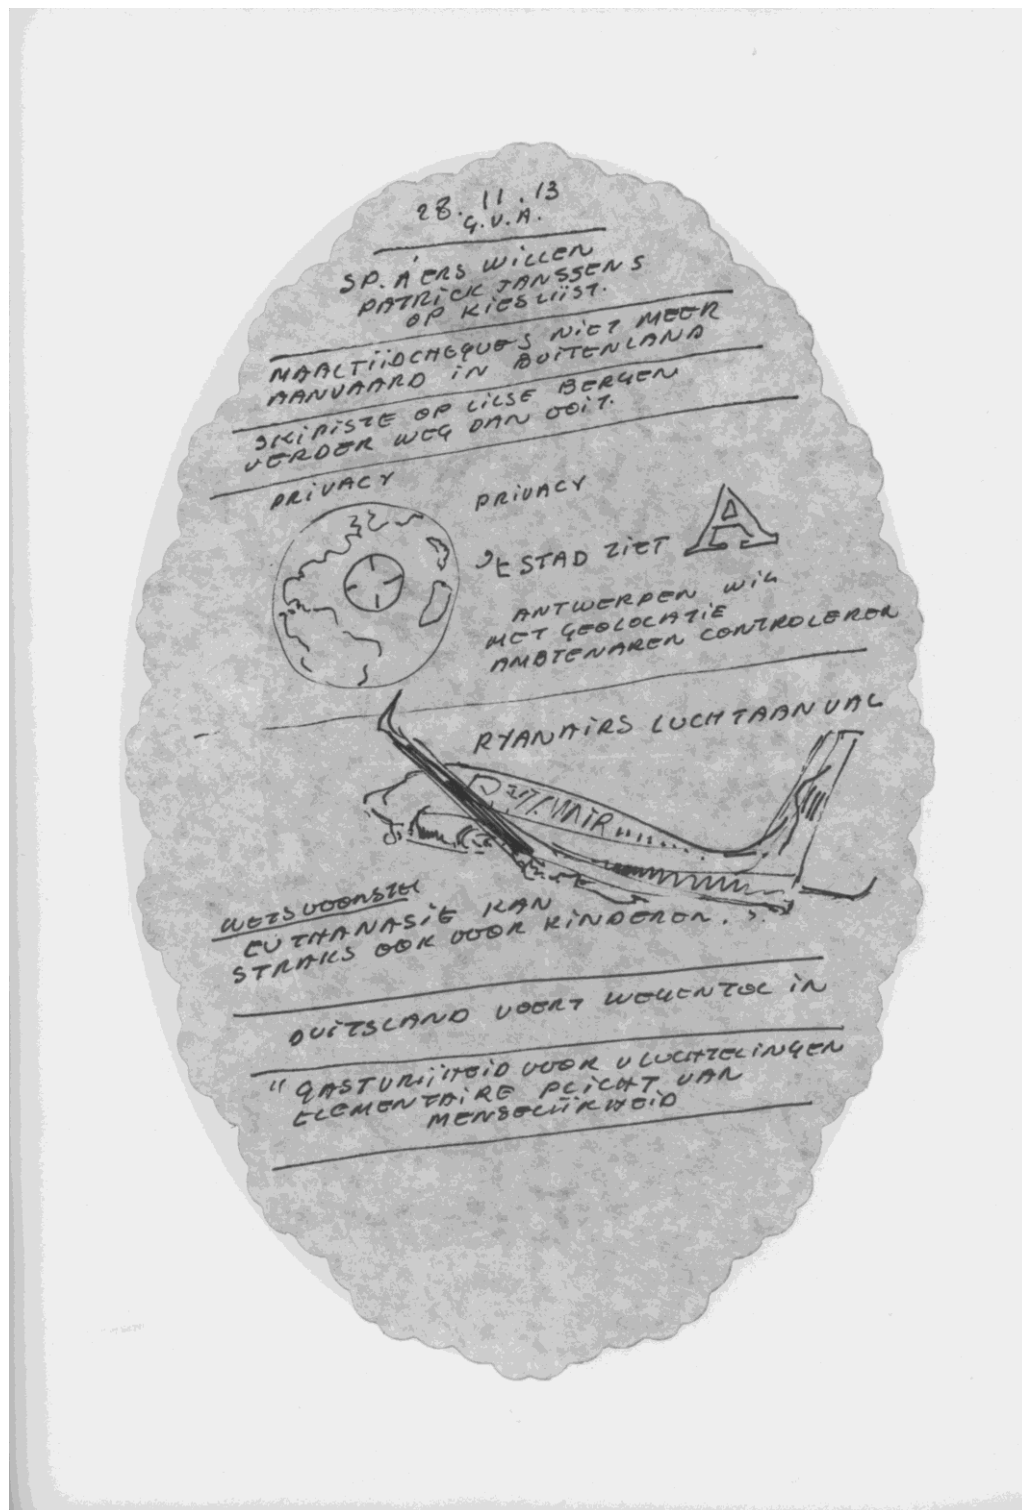 28.11.13
G.V.A.
SP.A'ERS WILLEN
PATRICK JANSSENS
OP KIESLIJST.
MAALTIJDCHEQUES NIET MEER
AANVAARD IN BUITENLAND
SKIPISTE OP LILSE BERGEN
VERDER WEG DAN OOIT.
PRIVACY
PRIVACY
'T STAD ZIET A
ANTWERPEN WIL
MET GEOLOCATIE
AMBTENAREN CONTROLEREN
RYANAIRS LUCHTAANVAL
WETSVOORSTEL
EUTHANASIE KAN
STRAKS OOK VOOR KINDEREN...
DUITSLAND VOERT WEGENTOL IN
"GASTVRIJHEID VOOR VLUCHTELINGEN
ELEMENTAIRE PLICHT VAN
MENSELIJKHEID